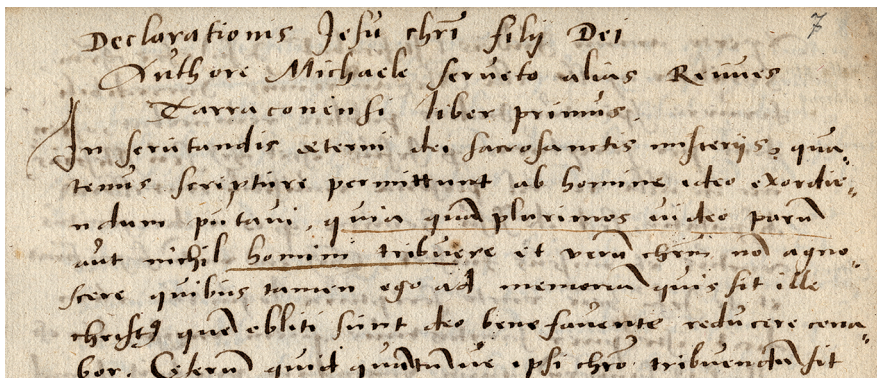 Declarationis Jesu chrī filij Dei 7
Authore Michaele serveto alias Revves
Tarraconensi liber primus.
In scrutandis æterni dei sacrosanctis misterijs, qua„
tenus scripture permittunt ab homine ideo exordie„
ndum putavi, quia quā plurimos video parū
aut nichil homini tribuere et verū chrm̄ nō agno„
scere quibus tamen ego ad memoriā quis sit ille
christꝰ quē obliti sunt deo bene favente reducere cona„
bor. Ceterū quid quātū ve ipsi chrō tribuendū sit